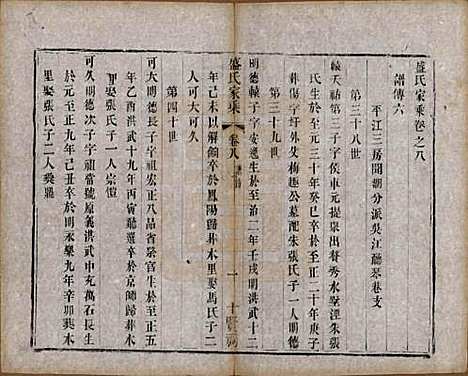 盛氏家乘卷之八
譜傳六
平江三房開湖分派吳江聽琴巷支
第三十八世
轅天祐第三子字侯車元提舉出贅秀水墅涇朱張
氏生於元三十年癸巳卒於至正二十年庚子
葬傷字圩外父梅趣公墓配朱張氏子一人明德
第三十九世
明德轅子字安遜生於至治二年壬戌明洪武十二
盛氏家乘
卷八
一
年己未以解餉卒於鳳陽歸葬木里娶馬氏子二
人可大可久
第四十世
可大明德長子字祖宏正八品省祭官生於至正五
年乙酉洪武十九年丙寅聽選卒於京師歸葬木
里娶張氏子一人宗愷
可久明德次子字祖當號原義洪武中充萬石長生
於至正九年己丑卒於明永樂九年辛卯葬木
里娶張氏子二人